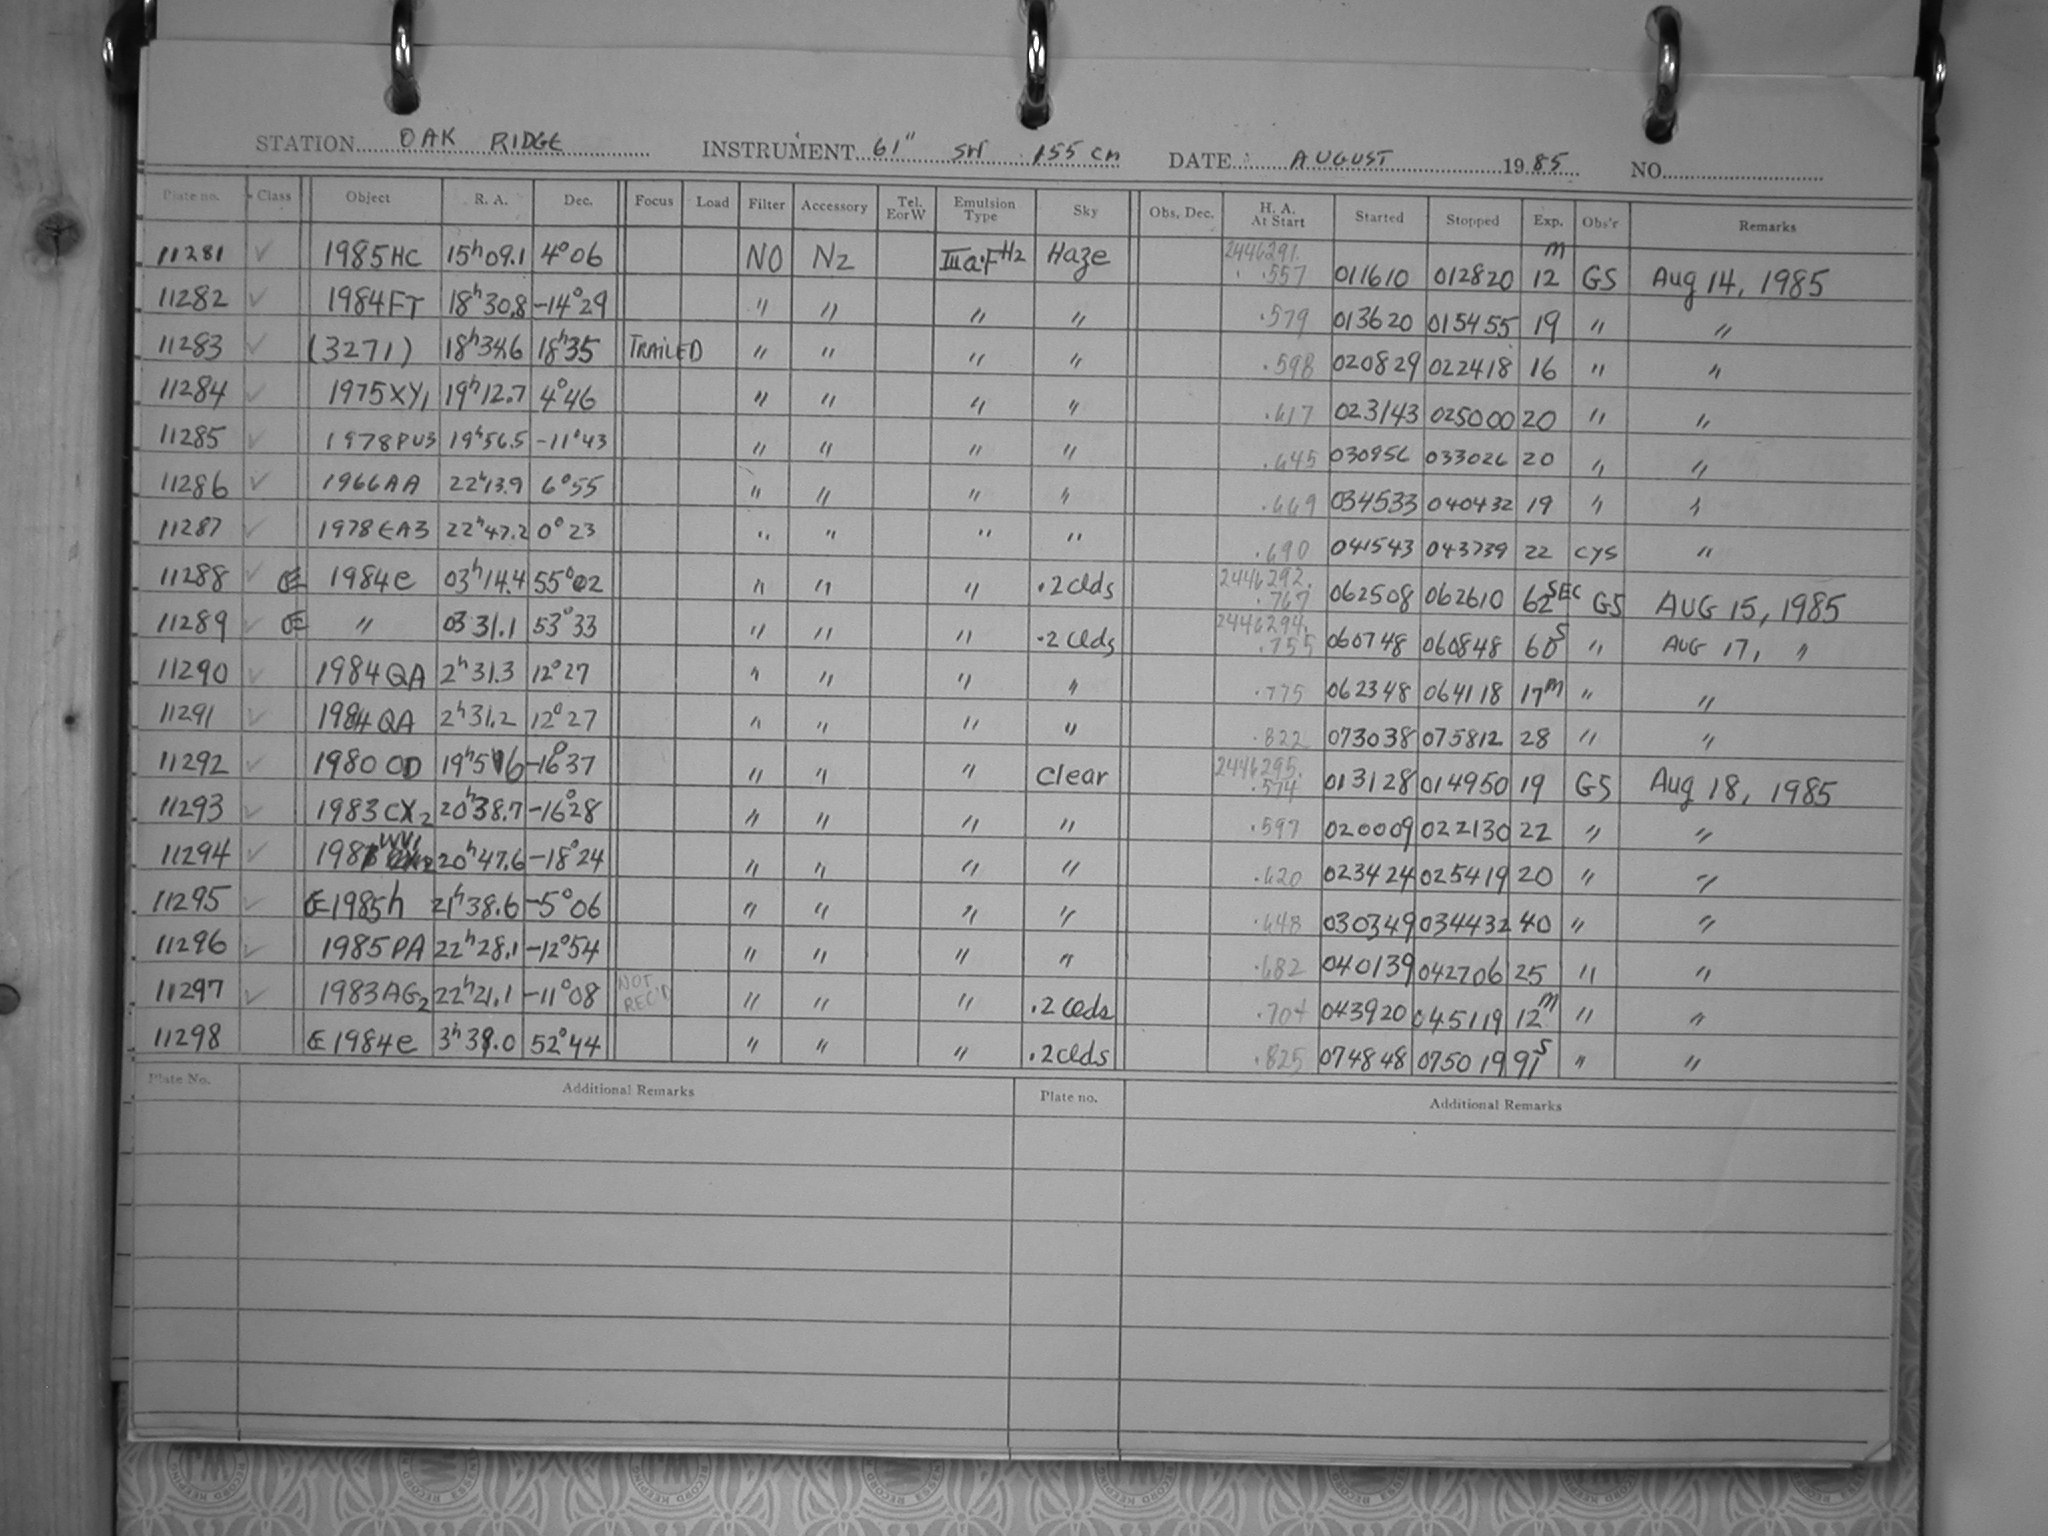 STATION OAK RIDGE INSTRUMENT 61" SH 155 CM DATE AUGUST 1985 NO.
Plate no. Class Object R. A. Dec. Focus Load Filter Accessory Tel. E or W Emulsion Type Sky Obs. Dec. H. A. At Start Started Stopped Exp. Obs'r Remarks
11281 ✓ 1985HC 15h09.1 4°06 NO N2 IIIa-F H2 Haze 2446291. .557 011610 012820 12m GS Aug 14, 1985
11282 ✓ 1984FT 18h30.8 -14°29 " " " " .579 013620 015455 19 " "
11283 ✓ (3271) 18h34.6 18h35 TRAILED " " " " .598 020829 022418 16 " "
11284 ✓ 1975XY1 19h12.7 4°46 " " " " .617 023143 025000 20 " "
11285 ✓ 1978PU3 19h56.5 -11°43 " " " " .645 030956 033026 20 " "
11286 ✓ 1966AA 22h13.9 6°55 " " " " .669 034533 040432 19 " "
11287 ✓ 1978EA3 22h47.2 0°23 " " " " .690 041543 043739 22 CYS "
11288 ✓ 1984e 03h14.4 55°02 " " " .2 clds 2446292. .767 062508 062610 62SEC GS AUG 15, 1985
11289 ✓ " 03 31.1 53°33 " " " .2 clds 2446294. .755 060748 060848 60s " AUG 17, "
11290 ✓ 1984QA 2h31.3 12°27 " " " " .775 062348 064118 17m " "
11291 ✓ 1984QA 2h31.2 12°27 " " " " .822 073038 075812 28 " "
11292 ✓ 1980 OD -16°37 " " " Clear 2446295. .574 013128 014950 19 GS Aug 18, 1985
11293 ✓ 1983CX2 20h38.7 -16°28 " " " " .597 020009 022130 22 " "
11294 ✓ WV1 20h47.6 -18°24 " " " " .620 023424 025419 20 " "
11295 ✓ 1985h 21h38.6 -5°06 " " " " .648 030349 034432 40 " "
11296 ✓ 1985PA 22h28.1 -12°54 " " " " .682 040139 042706 25 " "
11297 ✓ 1983AG2 22h21.1 -11°08 NOT REC'D " " " .2 clds .704 043920 045119 12m " "
11298 1984e 52°44 " " " .2 clds .825 074848 075019 91s " "
Plate No. Additional Remarks Plate no. Additional Remarks